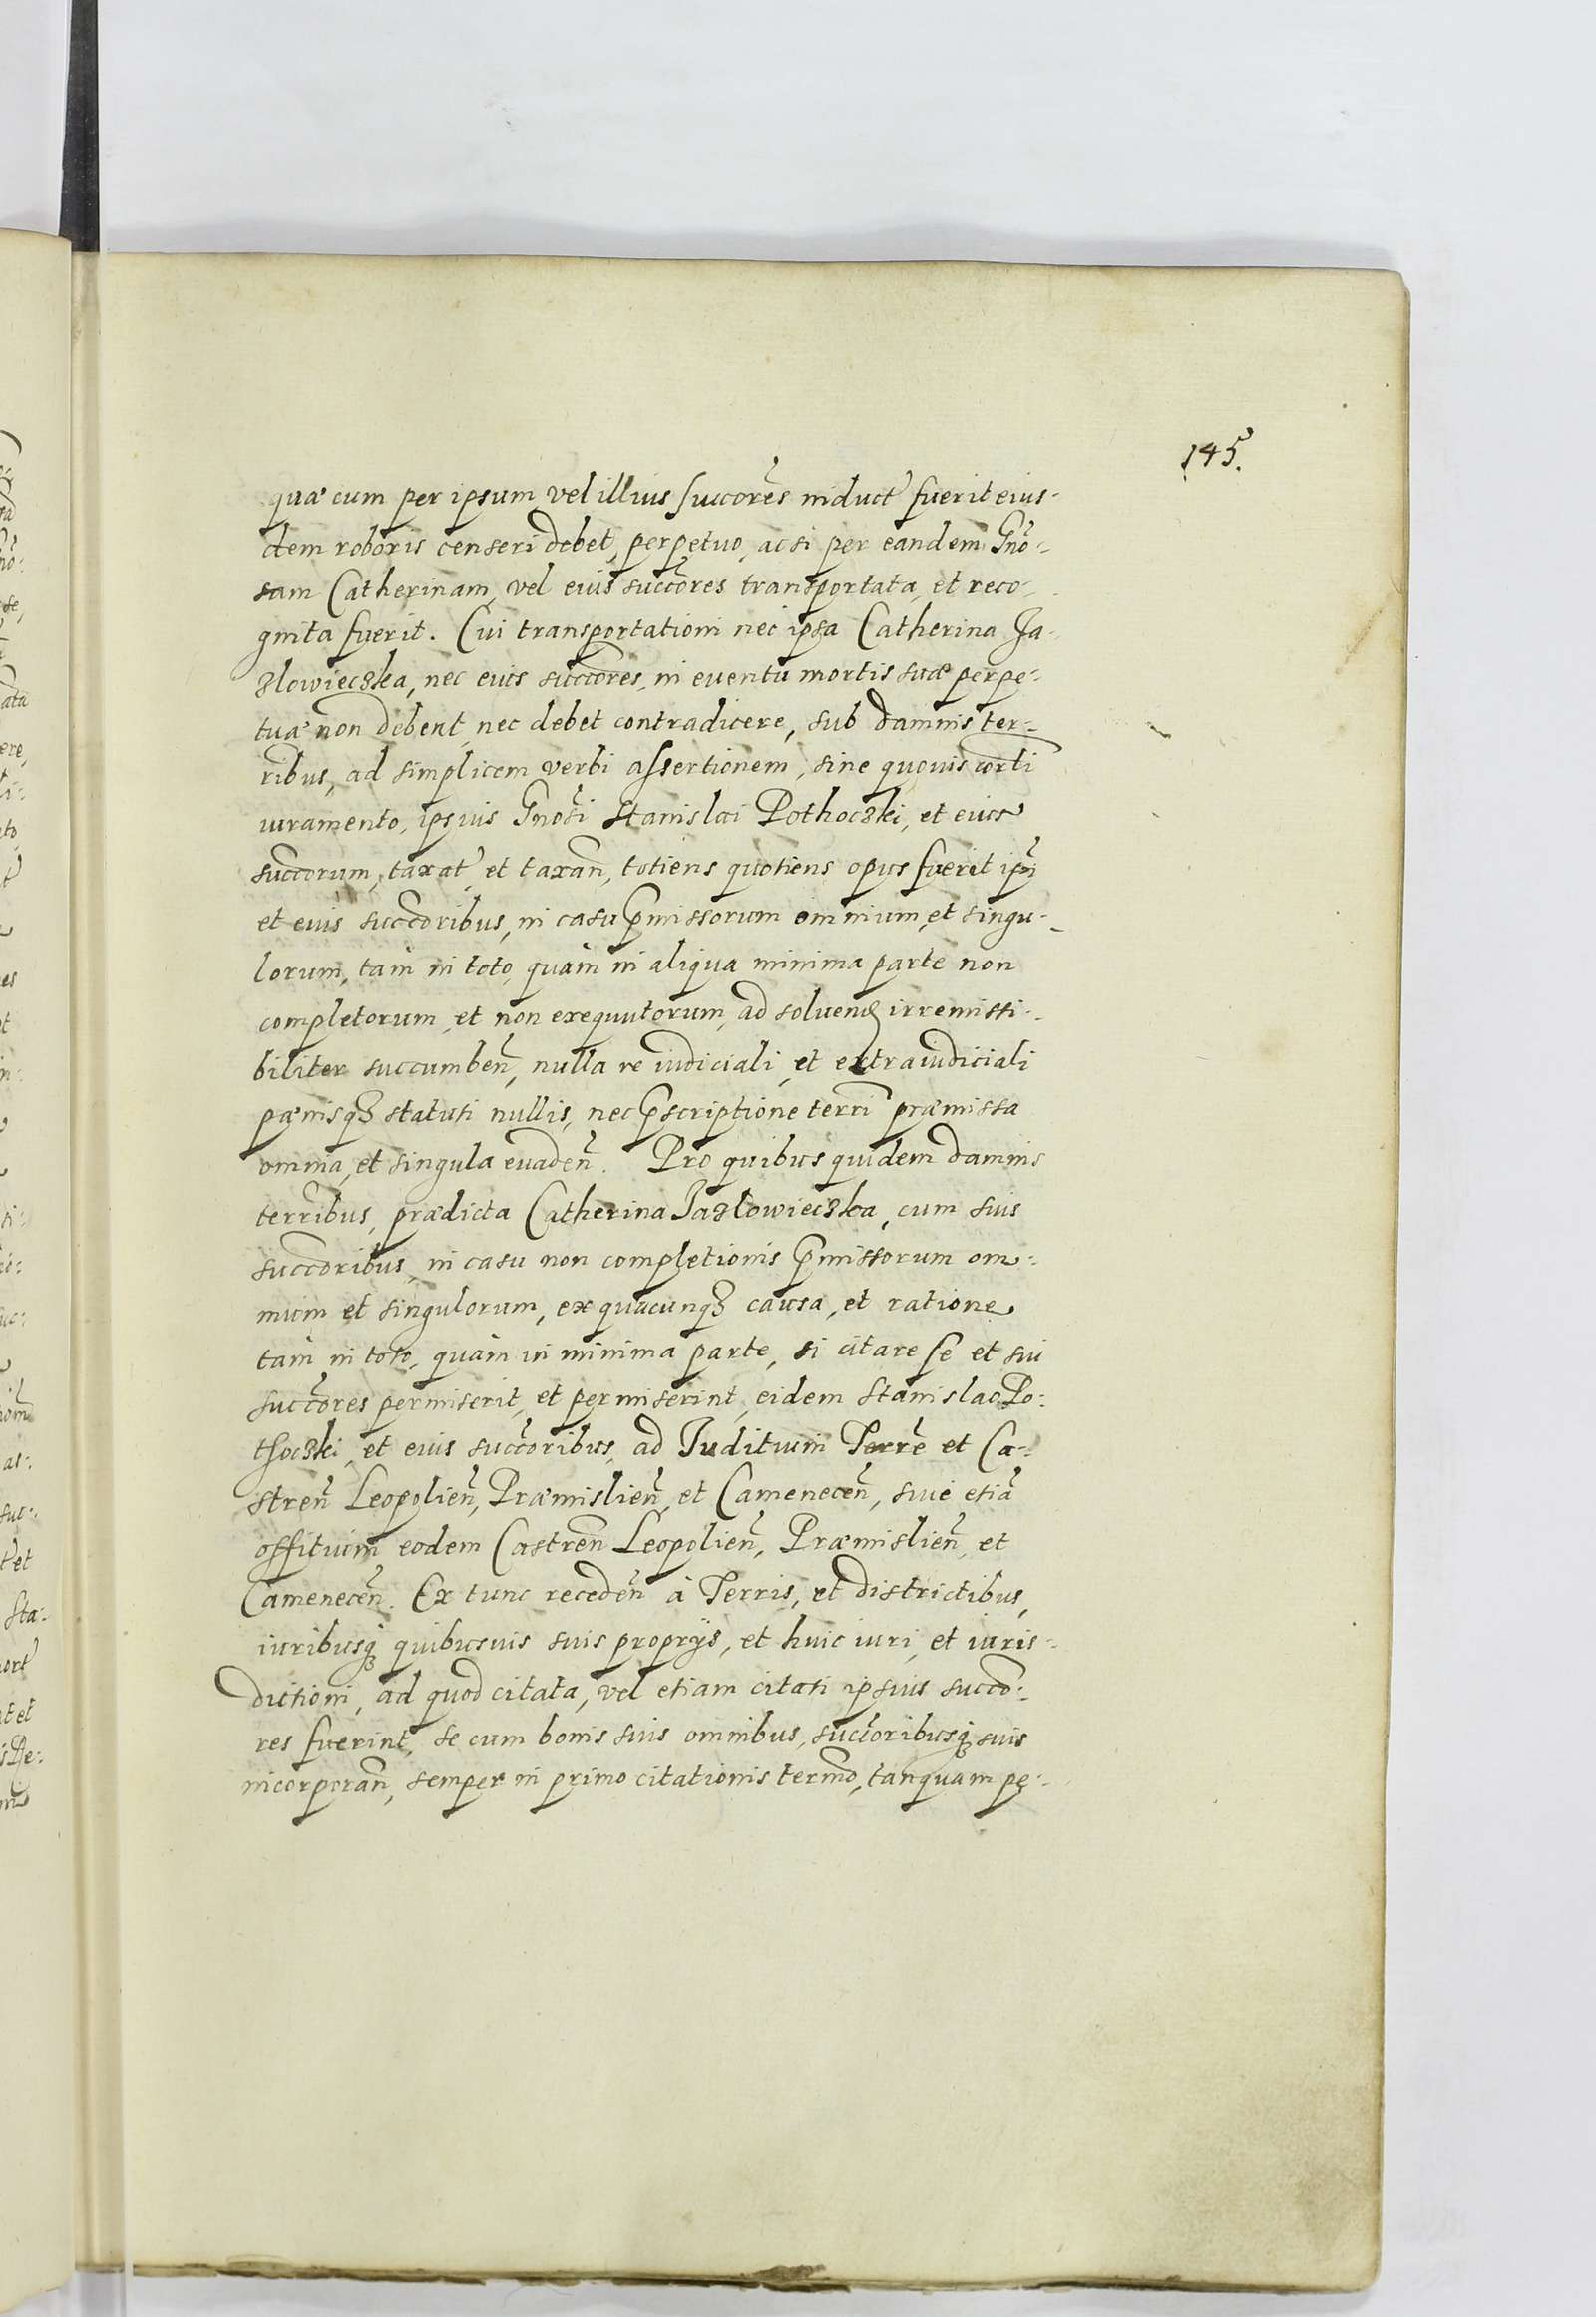 145.
quæ cum per ipsum vel illius succorẽs induct' fuerit eius-
dem roboris censeri debet, perpetuo, ac si per eandem Gnõ-
sam Catherinam, vel eius succores transportata, et reco-
gnita fuerit. Cui transportationi nec ipsa Catherina Ja-
zlowieczka, nec eius succores, in euentu mortis suæ perpe-
tuæ non debent, nec debet contradicere, sub damnis ter-
ribus, ad simplicem verbi assertionem, sine quouis corrli
iuramento, ipsius Gnosi Stanislai Pothoczki, et eius
succorum, taxat', et taxan, totiens quotiens opus fuerit ipi
et eius succoribus, in casu pmissorum omnium, et singu-
lorum, tam in toto, quàm in aliqua minima parte non
completorum, et non exequutorum, ad soluend irremissi-
biliter succumbeñ, nulla re iudiciali, et extraiudiciali
pænisq statuti nullis, nec pscriptione terri præmissa
omnia, et singula euadeñ. Pro quibus quidem damnis
terribus, prædicta Catherina Jazlowieczka, cum suis
succoribus, in casu non completionis pmissorum om-
nium et singulorum, ex quacunq causa, et ratione
tàm in toto, quàm in minima parte, si citare se et sui
succores permiserit, et permiserint, eidem Stanislao Po-
thoczki, et eius succoribus, ad Juditium Terre et Ca-
streñ Leopolieñ, Præmislieñ, et Cameneceñ, siue etiã
offitium eodem Castreñ Leopolieñ, Præmislieñ, et
Cameneceñ. Ex tunc recedeñ à Terris, et districtibus,
iuribusq quibusuis suis proprys, et huic iuri, et iuris-
dictioni, ad quod citata, vel etiam citati ipsius succo-
res fuerint, se cum bonis suis omnibus, succoribusq suis
incorporañ, semper in primo citationis termo, tanquam pe-